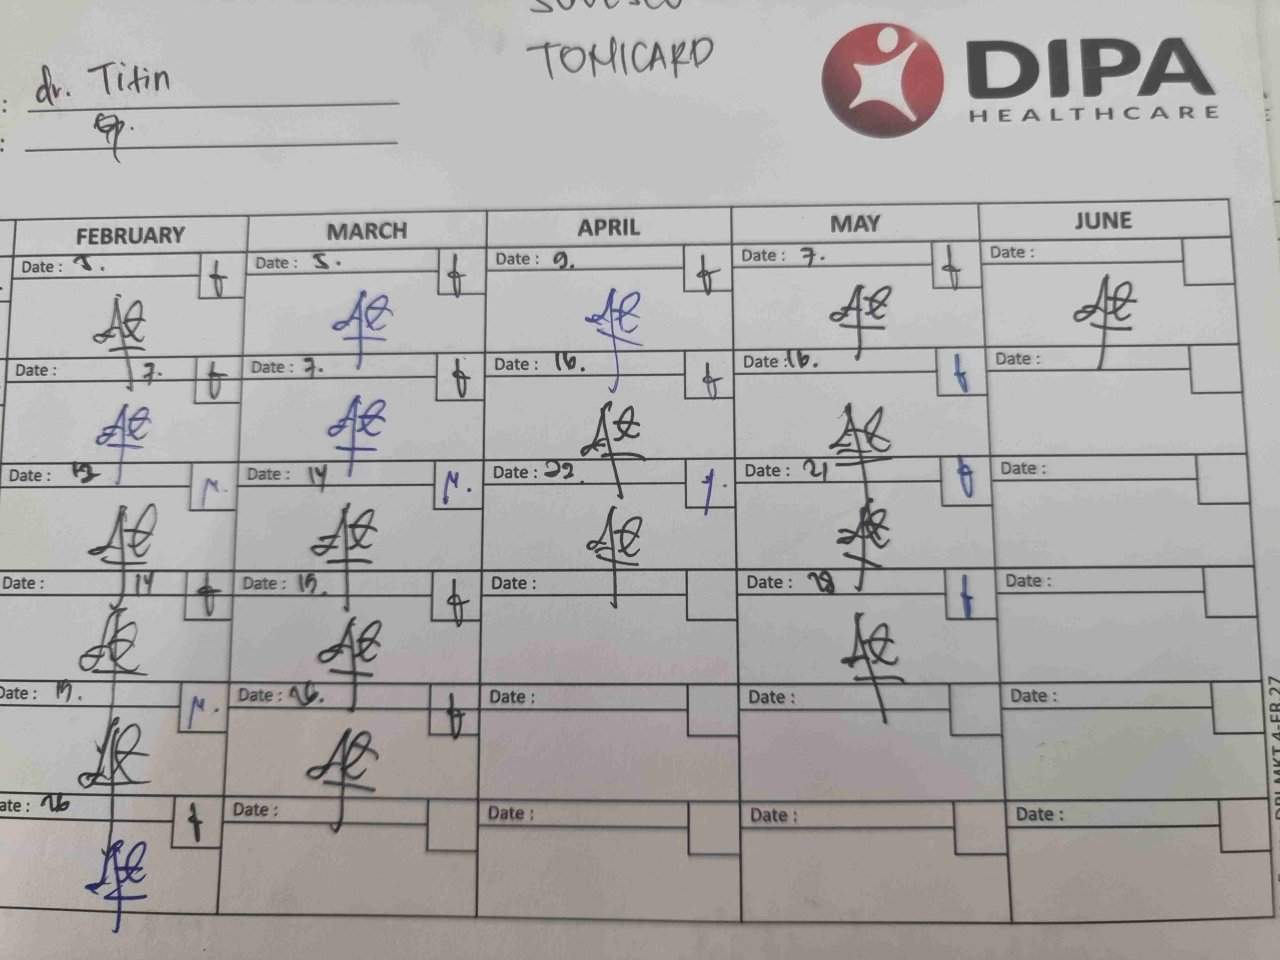 TOMICARD
DIPA
HEALTHCARE
: dr. Titin
:
FEBRUARY MARCH APRIL MAY JUNE
Date : 5. Date : 5. Date : 9. Date : 7. Date :
Date : 7. Date : 7. Date : 16. Date : 16. Date :
Date : 13 Date : 14 Date : 22. Date : 21 Date :
Date : 14 Date : 19. Date : Date : 28 Date :
Date : 19. Date : 26. Date : Date : Date :
ate : 26 Date : Date : Date : Date :